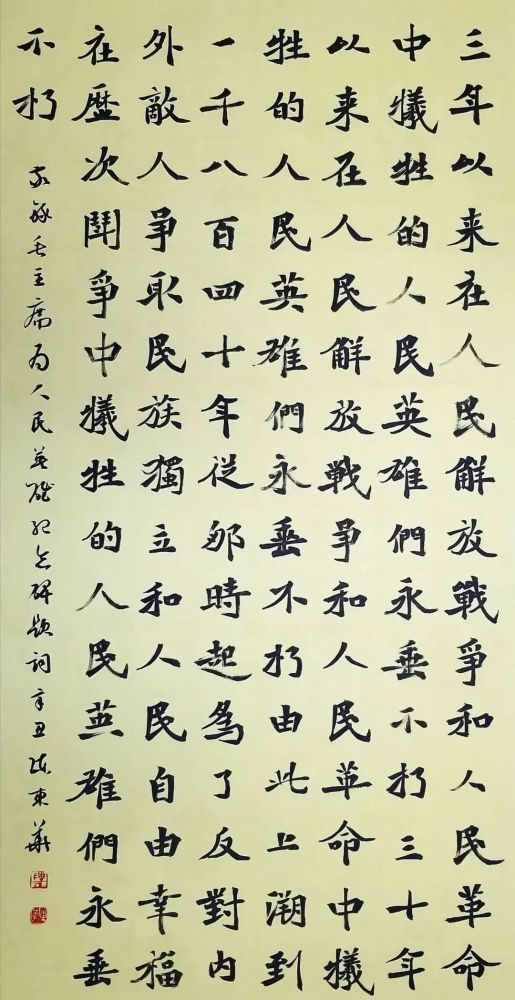 三年以来在人民解放戰爭和人民革命
中犧牲的人民英雄們永垂不朽三十年
以来在人民解放戰爭和人民革命中犧
牲的人民英雄們永垂不朽由此上溯到
一千八百四十年從那時起為了反對内
外敵人爭取民族獨立和人民自由幸福
在歷次鬪爭中犧牲的人民英雄們永垂
不朽
敬録毛主席为人民英雄纪念碑题词辛丑陈東華